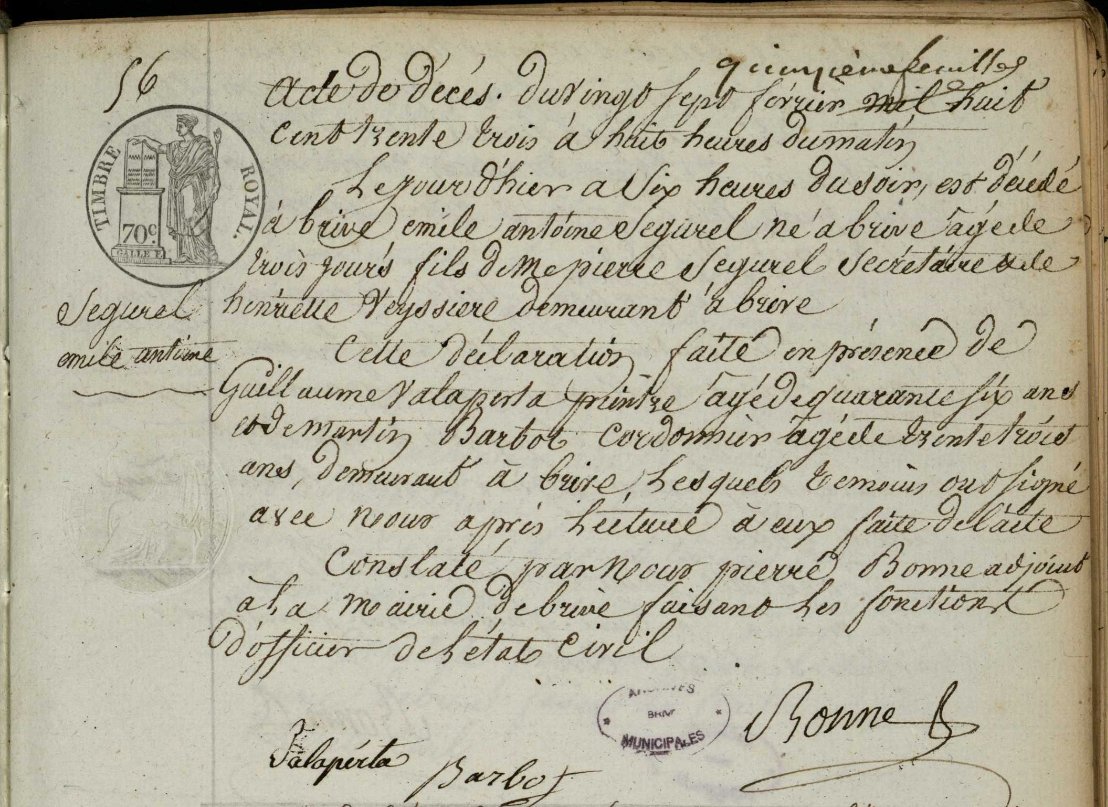 quinzième feuillet
56
Acte de décés. du vingt sept février mil huit
cent trente trois à huit heures du matin
Le jour d'hier a six heures du soir, est décédé
à brive emile antoine Segurel né a brive âgé de
trois jours fils de Me pierre Segurel Secrétaire & de
henriette Veyssiere demeurant à brive
Segurel
emile antoine
Cette déclaration faite en présence de
Guillaume Valaperta peintre âgé de quarante six ans
et de martin Barbot cordonnier âgé de trente trois
ans, demeurant à brive, Lesquels temoins ont signé
avec nous après Lecture à eux faite de l'acte
Constaté par nous pierre Bonne adjoint
a La mairie de brive faisant Les fonctions
d'officier de L'état Civil
TIMBRE ROYAL.
70c.
ARCHIVES
BRIVE
MUNICIPALES
Bonne
Valapérta
Barbot